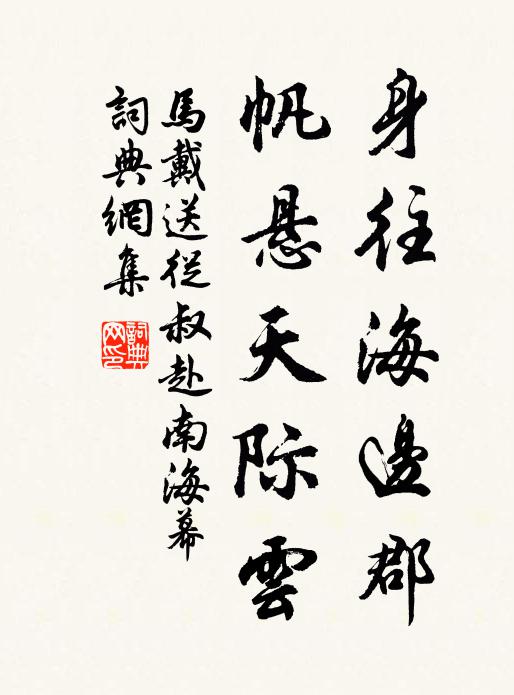 身往海邊郡
帆悬天际雲
馬戴送從叔赴南海幕
詞典網集
詞典网印